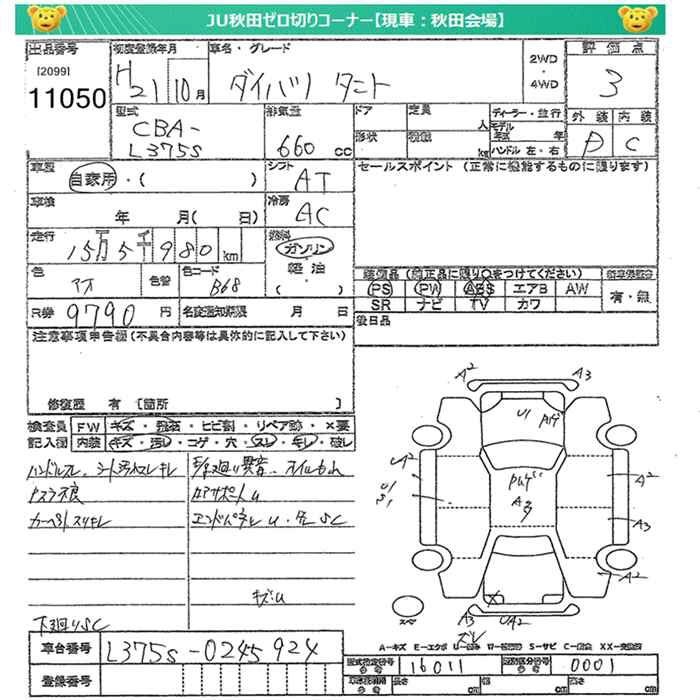 JU秋田ゼロ切りコーナー【現車：秋田会場】
出品番号 初度登録年月 車名・グレード 2WD・4WD 評価点
[2099]
11050 H21 10月 ダイハツ タント 3
型式 排気量 ドア 定員 人 ディーラー・並行 外装 内装
CBA-
L375S 660 cc 形状 積載 kg モデル年式 年 ハンドル 左・右 D C
車歴 自家用・( ) シフト AT セールスポイント(正常に機能するものに限ります)
車検 年 月( 日) 冷房 AC
走行 15万5千980km 燃料 ガソリン・軽油・( )
色 アオ 色替 色コード B68
装備品(純正品に限り○をつけてください)
PS PW ABS エアB AW 有・無
SR ナビ TV カワ
R券 9790円 名変通知期限 月 日 後日品
注意事項申告欄(不具合内容等は具体的に記入して下さい)
修復歴 有 [箇所 ]
検査員 FW キズ・飛石・ヒビ割・リペア跡・×要
記入欄 内装 キズ・汚レ・コゲ・穴・スレ・キレ・破レ
ハンドルスレ、シート汚れスレキレ
カーペットスリキレ
コアサポートU
エンドパネルU・SC
キズU
下廻りSC
A2 A3
U1
A2
A3
A2
A3 UA2
スペア
A-キズ E-エクボ U-凹み W-補修跡 S-サビ C-腐食 XX-交換済
車台番号 L375S-0245924
型式指定番号 16011 類別区分番号 0001
登録番号 長さ cm 幅 cm 高さ cm